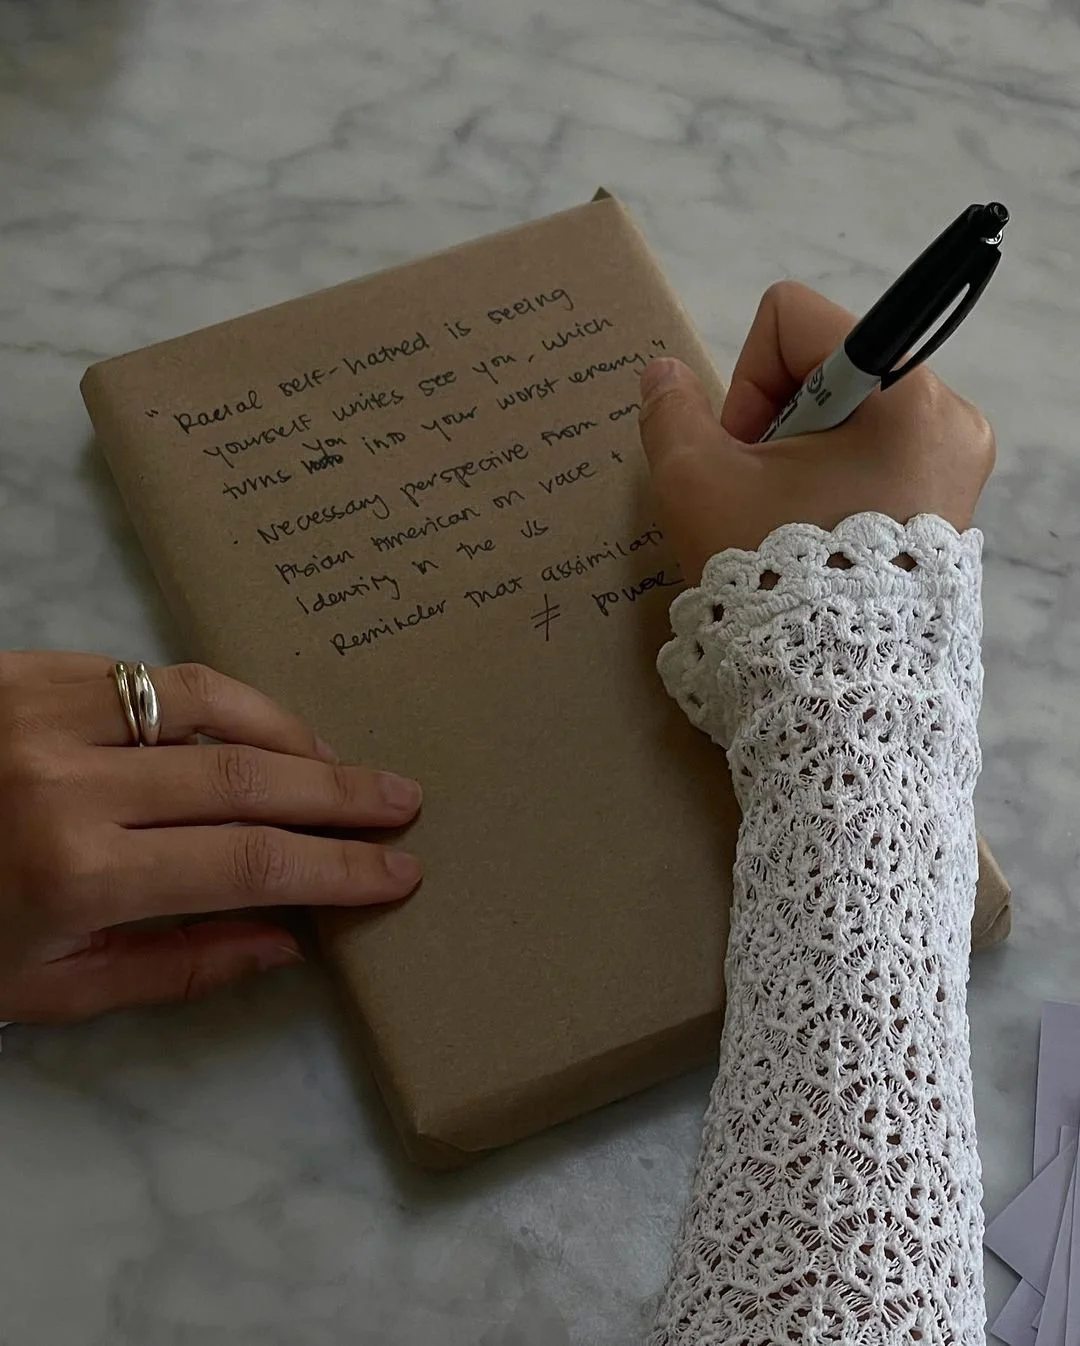 "Racial self-hatred is seeing
yourself whites see you, which
turns you into your worst enemy."
· Necessary perspective from an
Asian American on race +
identity in the US
· Reminder that assimilati
≠ power